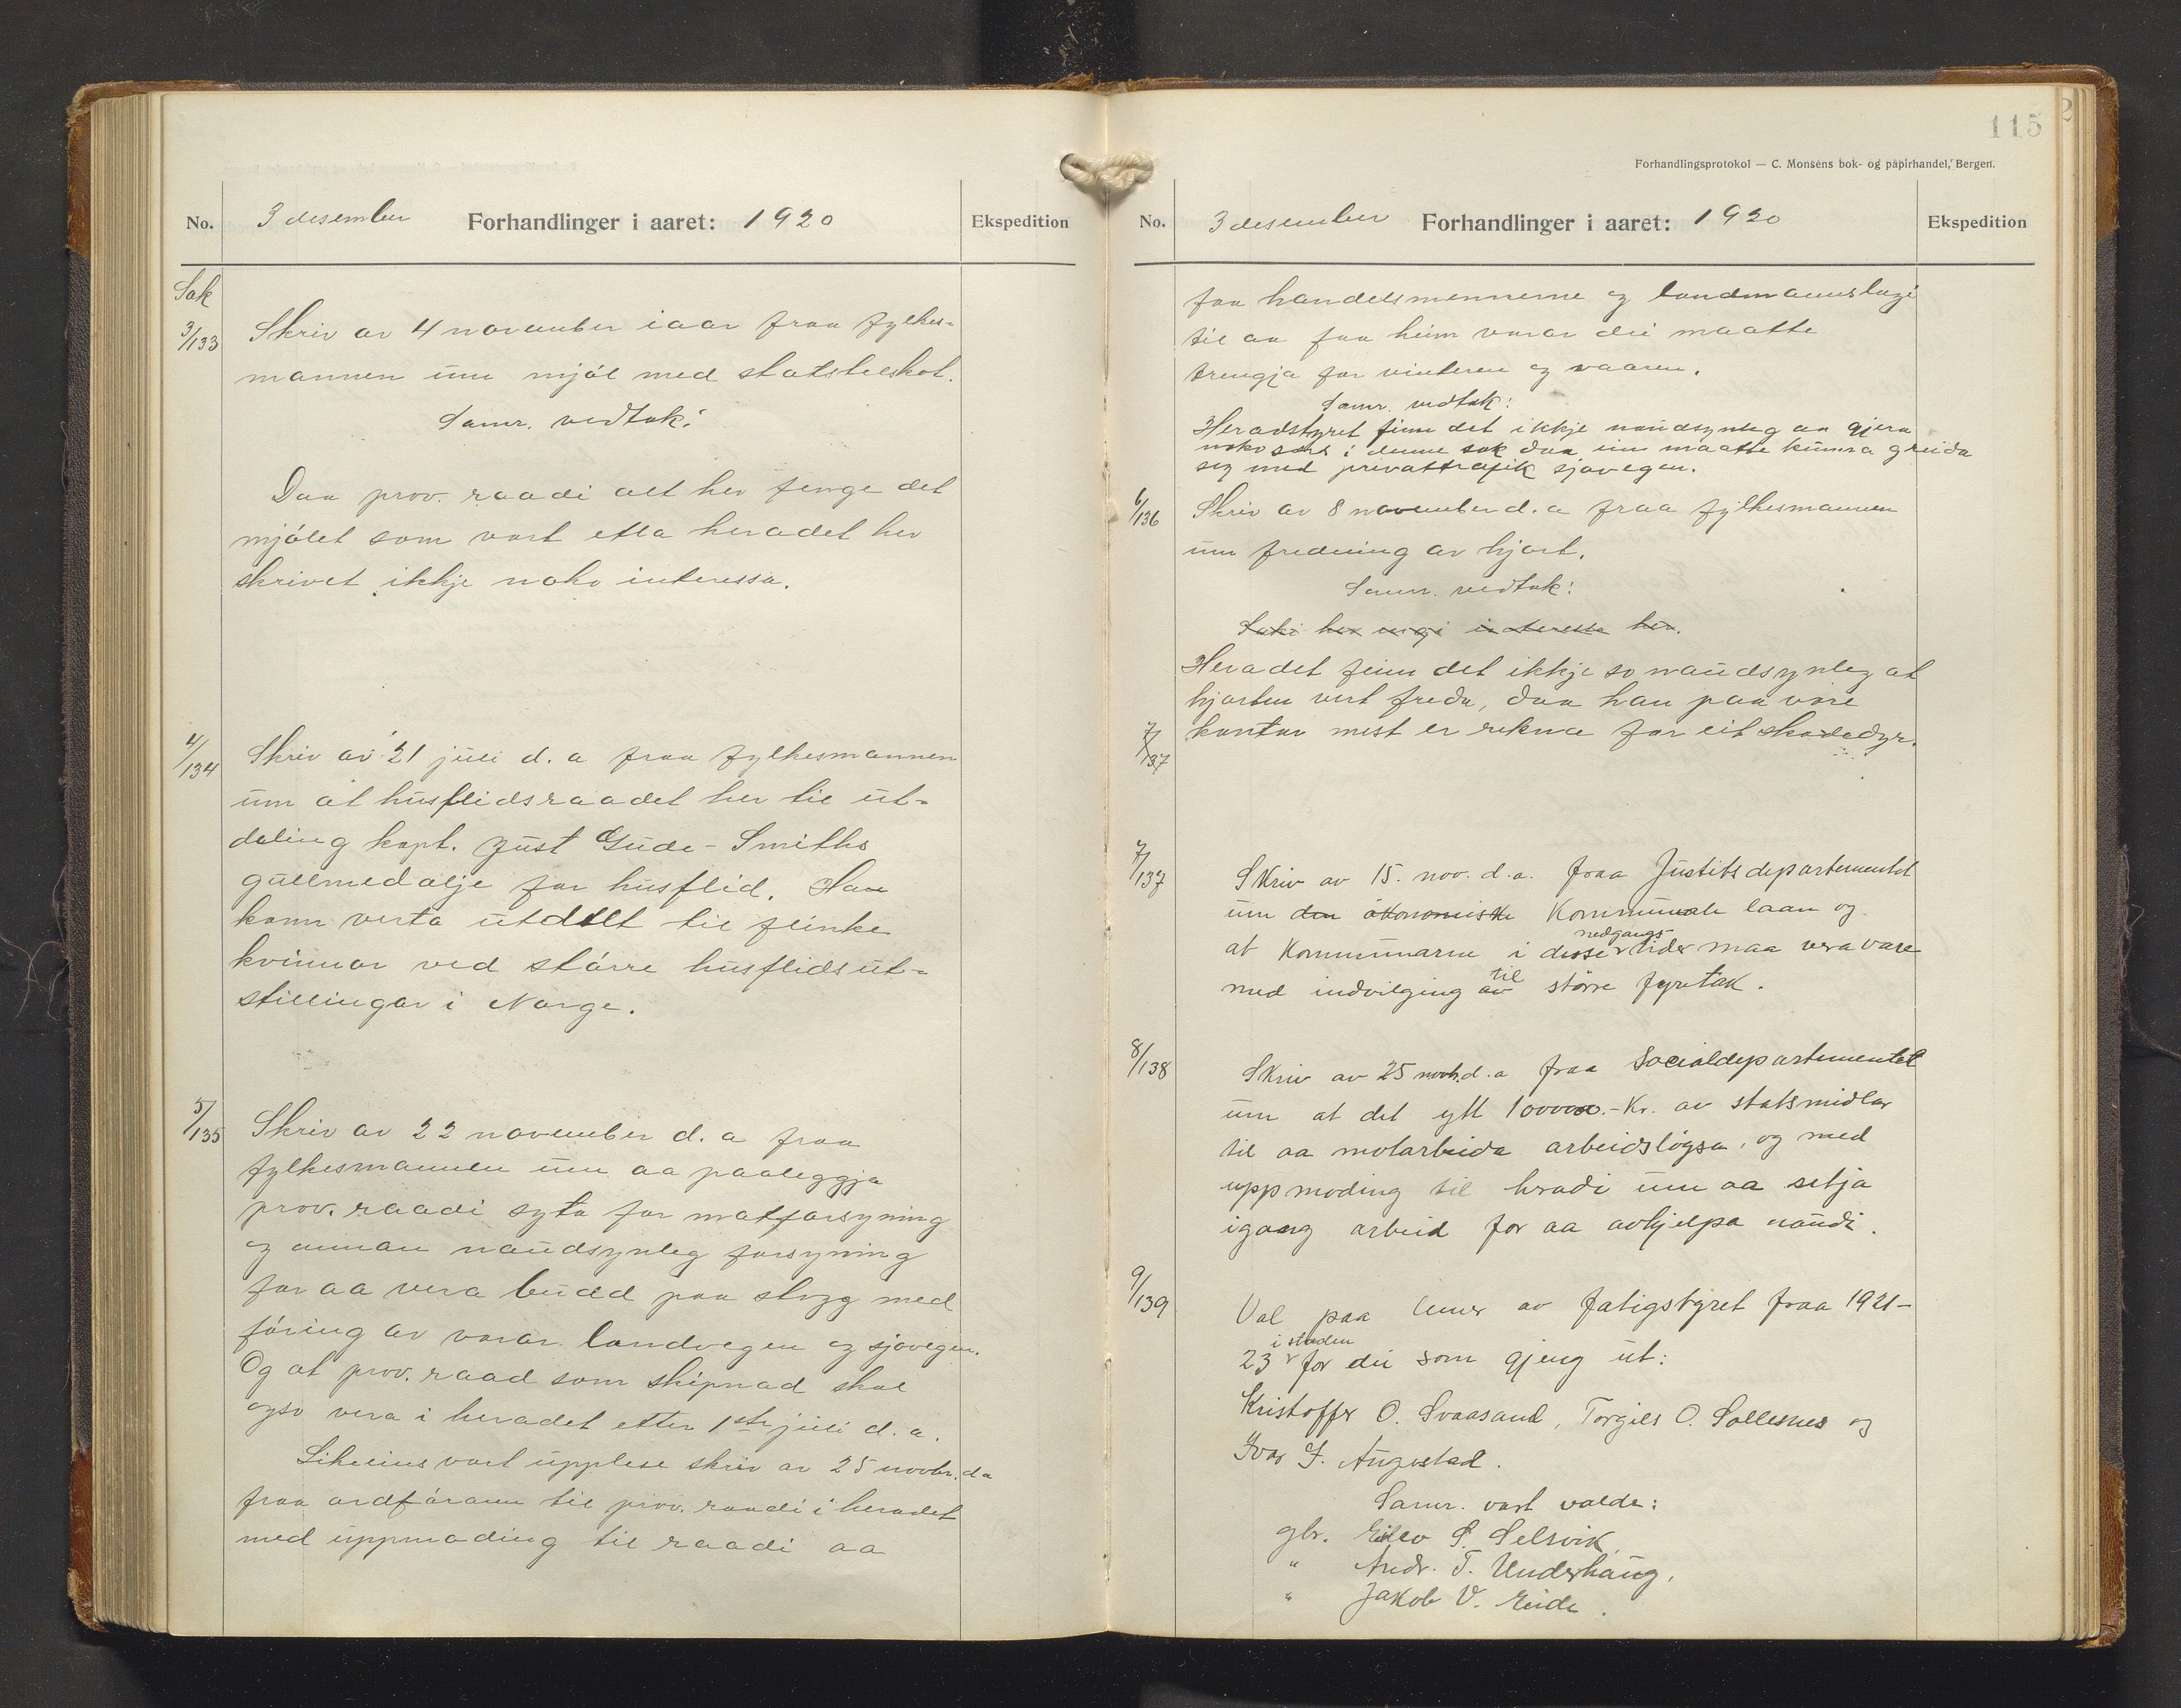 No. 3 desember Forhandlinger i aaret: 1920 Ekspedition
Sak
3/133 Skriv av 4 november iaar fraa fylkes-
mannen um mjøl med statstilskot.
Samr. vedtak:
Daa prov. raadi alt hev fenge det
mjølet som vart etla heradet hev
skrivet ikkje noko interessa.
4/134 Skriv av 21 juli d. a fraa fylkesmannen
um at husflidsraadet hev til ut-
deling kapt. Just Gude-Smiths
gullmedalje for husflid. Han
kann verta utdelt til flinke
kvinnor ved større husflidsut-
stillingar i Norge.
5/135 Skriv av 22 november d. a fraa
fylkesmannen um aa paaleggja
prov. raadi syta for matforsyning
og annan naudsynleg forsyning
for aa vera budd paa stogg med
føring av varar landvegen og sjovegen.
Og at prov. raad som skipnad skal
ogso vera i heradet etter 1ste juli d. a.
Likeeins vart upplese skriv av 25 novbr. d a
fraa ordførarn til prov. raadi i heradet
med uppmoding til raadi aa
115
Forhandlingsprotokol — C. Monsens bok- og papirhandel, Bergen.
No. 3 desember Forhandlinger i aaret: 1920 Ekspedition
faa handelsmennerne og landmannslagi
til aa faa heim varar dei maatte
trengja for vinteren og vaaren.
Samr. vedtak:
Heradstyret finn det ikkje naudsynleg aa gjera
noko særs i denne sak daa ein maatte kunna greida
seg med privattrafik sjøvegen.
6/136 Skriv av 8 november d. a fraa fylkesmannen
um fredning av hjort.
Samr. vedtak:
Saki hev ingi interesse her.
Heradet finn det ikkje so naudsynleg at
hjorten vert freda, daa han paa vore
kantar mest er rekna for eit skadedyr.
7/137
7/137 Skriv av 15. nov. d. a. fraa Justitsdepartementet
um den økonomiske Kommunale laan og
nedgangs-
at Kommunarne i desse tider maa vera vare
til
med indvilging av større fyretak.
8/138 Skriv av 25 novb. d. a fraa Socialdepartementet
um at det ytt 100000.- Kr. av statsmidlar
til aa motarbeida arbeidsløysa, og med
uppmoding til heradi um aa setja
igang arbeid for aa avhjelpa naudi.
9/139 Val paa lemer av fatigstyret fraa 1921-
i staden
23 for dei som gjeng ut:
Kristoffer O. Svaasand, Torgils O. Sollesnes og
Ivar J. Augestad.
Samr. vart valde:
gbr. Eilev S. Selsvik
" Andr. T. Underhaug.
" Jakob V. Eide.